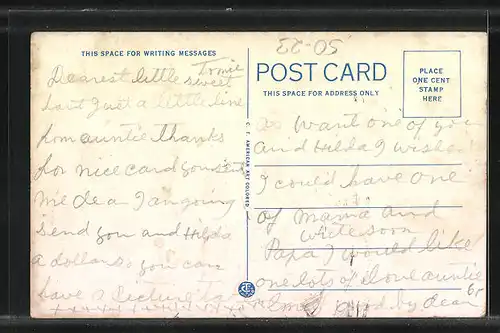 50-23
THIS SPACE FOR WRITING MESSAGES
POST CARD
THIS SPACE FOR ADDRESS ONLY
PLACE
ONE CENT
STAMP
HERE
C. T. AMERICAN ART COLORED
Dearest little sweet
hart Just a little line
from auntie thanks
for nice card you send
me dear I am going
send you and Hilda
a dollar so you can
have a Picture ta
xxxxxxxxxx
want one of you
and Hilda I wishe
I could have one
of Mama and
write soon
Papa I would like
one lots of love auntie
by dear